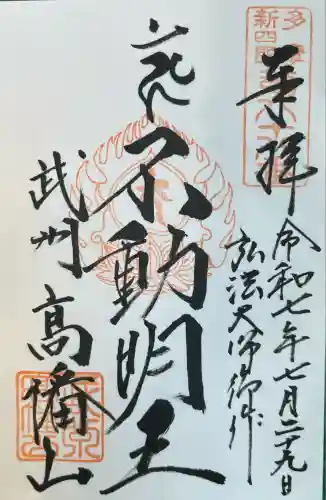 奉拝
令和七年七月二十九日
弘法大師御作
不動明王
武州
高幡山